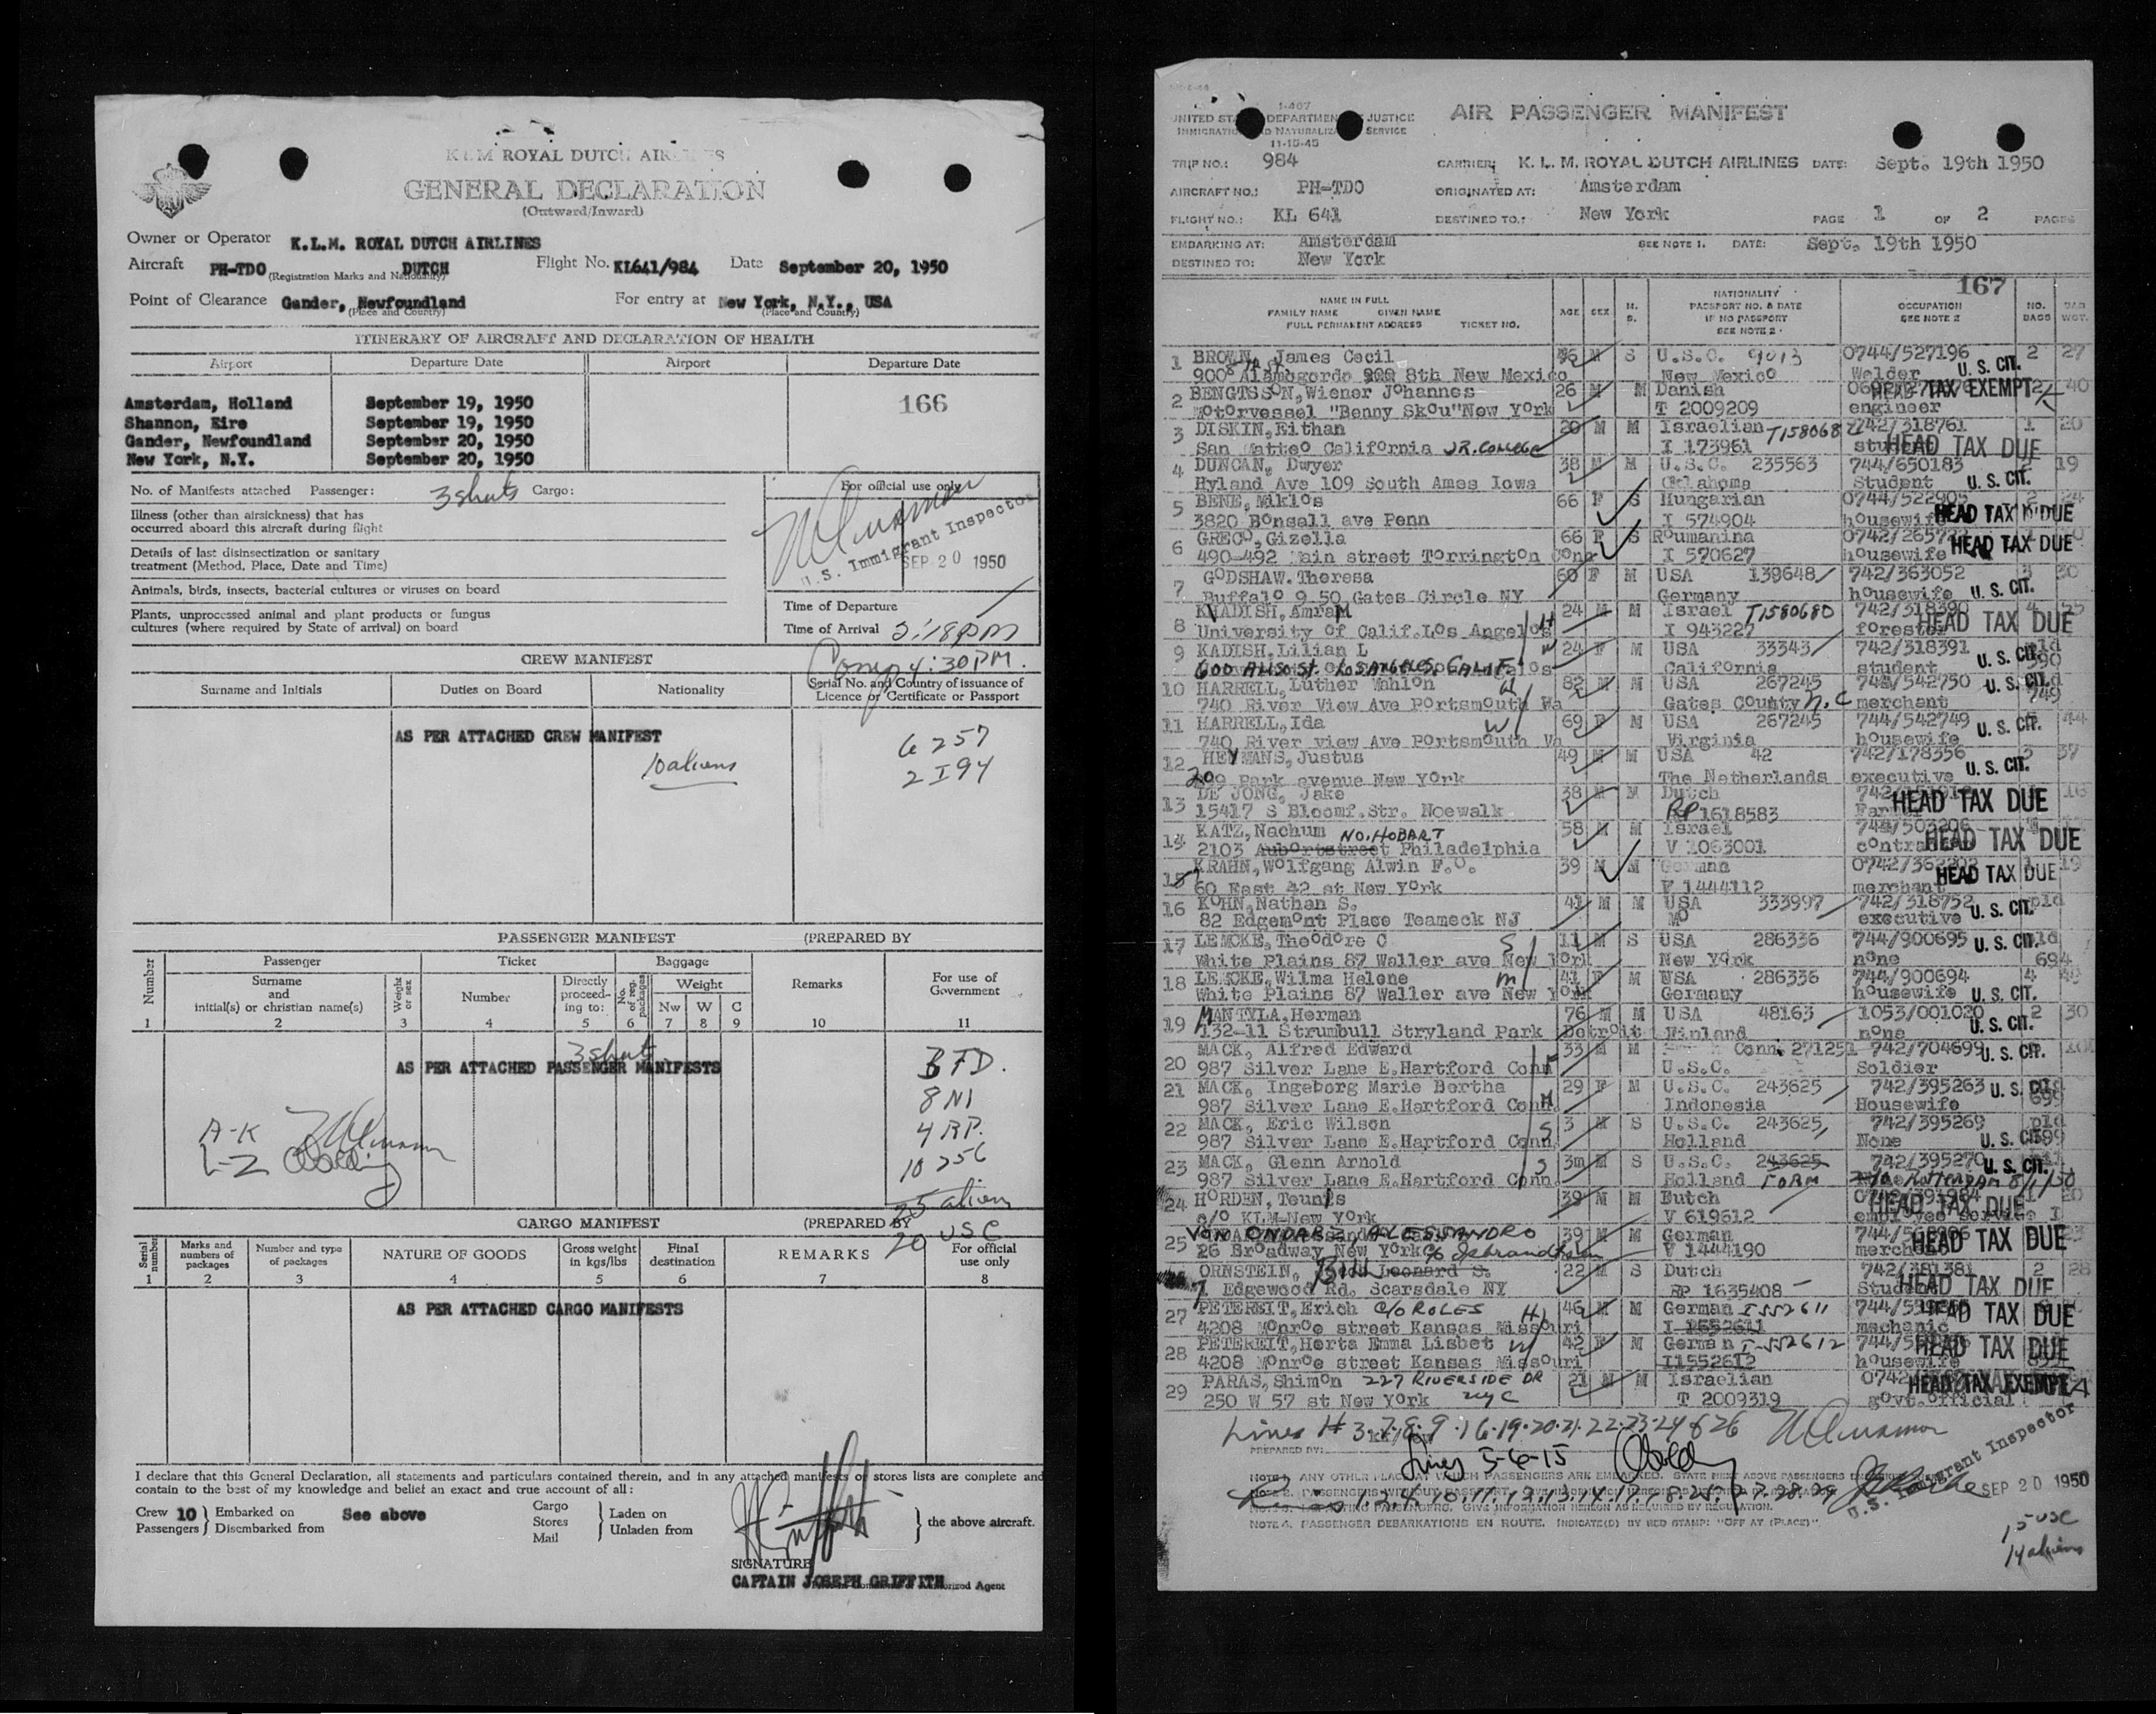 K.L.M. ROYAL DUTCH AIRLINES
GENERAL DECLARATION
(Outward/Inward)
Owner or Operator K.L.M. ROYAL DUTCH AIRLINES
Aircraft PH-TDO DUTCH Flight No. KL641/984 Date September 20, 1950
(Registration Marks and Nationality)
Point of Clearance Gander, Newfoundland For entry at New York, N.Y., USA
(Place and Country) (Place and Country)
ITINERARY OF AIRCRAFT AND DECLARATION OF HEALTH
Airport Departure Date Airport Departure Date
166
Amsterdam, Holland September 19, 1950
Shannon, Eire September 19, 1950
Gander, Newfoundland September 20, 1950
New York, N.Y. September 20, 1950
No. of Manifests attached Passenger: 3 shuts Cargo:
For official use only
Illness (other than airsickness) that has
occurred aboard this aircraft during flight
Details of last disinsectization or sanitary
treatment (Method, Place, Date and Time)
U.S. Immigrant Inspector
SEP 20 1950
Animals, birds, insects, bacterial cultures or viruses on board
Plants, unprocessed animal and plant products or fungus
cultures (where required by State of arrival) on board
Time of Departure
Time of Arrival 3:18 PM
4:30 PM.
CREW MANIFEST
Surname and Initials Duties on Board Nationality Serial No. and Country of issuance of
Licence or Certificate or Passport
AS PER ATTACHED CREW MANIFEST
10 aliens
6 257
2 I94
PASSENGER MANIFEST (PREPARED BY
Number Passenger Ticket Baggage Remarks For use of
Government
Surname
and
initial(s) or christian name(s)
Weight or sex
Number
Directly
proceed-
ing to:
No. of reg. packages
Weight
Nw W C
1 2 3 4 5 6 7 8 9 10 11
3 shuts
AS PER ATTACHED PASSENGER MANIFESTS
3 TD.
8 NI
4 RP.
10 256
25 aliens
20 USC
A-K
L-Z
CARGO MANIFEST (PREPARED BY
Serial number
Marks and
numbers of
packages
Number and type
of packages
NATURE OF GOODS
Gross weight
in kgs/lbs
Final
destination
REMARKS
For official
use only
1 2 3 4 5 6 7 8
AS PER ATTACHED CARGO MANIFESTS
I declare that this General Declaration, all statements and particulars contained therein, and in any attached manifests or stores lists are complete and
contain to the best of my knowledge and belief an exact and true account of all:
Crew 10 Embarked on See above Cargo Laden on
Passengers Disembarked from Stores Unladen from the above aircraft.
Mail
SIGNATURE
CAPTAIN JOSEPH GRIFFITH
Authorized Agent
I-407
UNITED STATES DEPARTMENT OF JUSTICE
IMMIGRATION AND NATURALIZATION SERVICE
11-15-45
AIR PASSENGER MANIFEST
TRIP NO.: 984 CARRIER: K. L. M. ROYAL DUTCH AIRLINES DATE: Sept. 19th 1950
AIRCRAFT NO.: PH-TDO ORIGINATED AT: Amsterdam
FLIGHT NO.: KL 641 DESTINED TO.: New York PAGE 1 OF 2 PAGES
EMBARKING AT: Amsterdam SEE NOTE 1. DATE: Sept. 19th 1950
DESTINED TO: New York
167
NAME IN FULL
FAMILY NAME GIVEN NAME
FULL PERMANENT ADDRESS TICKET NO.
AGE SEX M. S.
NATIONALITY
PASSPORT NO. & DATE
IF NO PASSPORT
SEE NOTE 2
OCCUPATION
SEE NOTE 2
NO. BAGS BAG WGT.
1 BROWN, James Cecil 46 M S U.S.C. 9013 0744/527196 2 27
900 Alamogordo 8th New Mexico New Mexico Welder U. S. CIT.
2 BENGTSSON, Wiener Johannes 26 M M Danish HEAD TAX EXEMPT 40
Motorvessel "Benny Skou" New York T 2009209 engineer
3 DISKIN, Eithan 20 M M Israelian T158068 742/318761 1 20
San Matteo California JR. COLLEGE I 173961 student HEAD TAX DUE
4 DUNCAN, Dwyer 38 M M U.S.C. 235563 744/650183 19
Hyland Ave 109 South Ames Iowa Oklahoma Student U. S. CIT.
5 BENE, Miklos 66 F S Hungarian 0744/522905 2 24
3820 Bonsall ave Penn I 574904 housewife HEAD TAX DUE
6 GRECO, Gizella 66 F S Roumanina
490-492 Main street Torrington Conn I 570627 housewife HEAD TAX DUE
7 GODSHAW. Theresa 60 F M USA 139648 742/363052 3 30
Buffalo 9 50 Gates Circle NY Germany housewife U. S. CIT.
8 KADISH, Amram 24 M M Israel T1580680 742/318390
University of Calif. Los Angelos H I 943227 forester HEAD TAX DUE
9 KADISH, Lilian L 24 F M USA 33343 742/318391 pld
600 ALISO ST. LOS ANGELES, CALIF. California student U. S. CIT. 390
10 HARRELL, Luther Mahlon 82 M M USA 267245 744/542750 pld
740 River View Ave Portsmouth Va Gates County N.C merchant U. S. CIT. 749
11 HARRELL, Ida W 69 F M USA 267245 744/542749 44
740 River view Ave Portsmouth Va Virginia housewife U. S. CIT.
12 HEYMANS, Justus 49 M M USA 42 742/178356 3 37
299 Park avenue New York The Netherlands executive U. S. CIT.
13 DE JONG, Jake 38 M M Dutch 16
15417 S Bloomf. Str. Noewalk RP 1618583 Farmer HEAD TAX DUE
14 KATZ, Nachum NO. HOBART 58 M M Israel 744/503206
2103 Aubortstreet Philadelphia V 1063001 HEAD TAX DUE
15 KRAHN, Wolfgang Alwin F.O. 39 M M German 1 19
60 East 42 st New York V 1444112 merchant HEAD TAX DUE
16 KOHN, Nathan S. 41 M M USA 333997 742/318752 pld
82 Edgemont Place Teameck NJ MO executive U. S. CIT.
17 LEMCKE, Theodore C S 11 M S USA 286336 744/900695 pld
White Plains 87 Waller ave New York New York none U. S. CIT. 694
18 LEMCKE, Wilma Helene m 41 F M USA 286336 744/900694 4
White Plains 87 Waller ave New York Germany housewife U. S. CIT.
19 MANTYLA, Herman 76 M M USA 48163 1053/001020 2 30
132-11 Strumbull Stryland Park Detroit Finland none U. S. CIT.
20 MACK, Alfred Edward 33 M M Conn. 271251 742/704699 U. S. CIT.
987 Silver Lane E. Hartford Conn U.S.C. Soldier
21 MACK, Ingeborg Marie Bertha 29 F M U.S.C. 243625 742/395263 U. S. CIT. pld
987 Silver Lane E. Hartford Conn. Indonesia Housewife 699
22 MACK, Eric Wilson S 3 M S U.S.C. 243625, 742/395269 pld
987 Silver Lane E. Hartford Conn. Holland None U. S. CIT. 699
23 MACK, Glenn Arnold S 3m M S U.S.C. 243625 742/395270 U. S. CIT.
987 Silver Lane E. Hartford Conn. Holland FORM ROTTERDAM 8/1/50
24 HORDEN, Teunis 39 M M Dutch 20
c/o KLM-New York V 619612 HEAD TAX DUE
25 VON ONDARZA, ALESSANDRO 39 M M German
26 Broadway New York V 1444190 merchant HEAD TAX DUE
ORNSTEIN, Leonard S. 22 M S Dutch 742/381381 2 28
7 Edgewood Rd. Scarsdale NY RP 1635408 Student HEAD TAX DUE
27 PETEREIT, Erich C/O ROLES H 46 M M German I 552611
4208 Monroe street Kansas Missouri I 1552611 mechanic HEAD TAX DUE
28 PETEREIT, Herta Emma Lisbet W 42 F M German I 552612
4208 Monroe street Kansas Missouri I1552612 housewife HEAD TAX DUE
29 PARAS, Shimon 227 RIVERSIDE DR 21 M M Israelian 0742 HEAD TAX EXEMPT
250 W 57 st New York NYC T 2009319 govt. official
Lines # 3.7.8.9.16.19.20.21.22.23.24 & 26
PREPARED BY:
Lines 5-6-15
NOTE 1. ANY OTHER PLACE AT WHICH PASSENGERS ARE EMBARKED.
U.S. Immigrant Inspector
SEP 20 1950
NOTE 4. PASSENGER DEBARKATIONS EN ROUTE. INDICATE(D) BY RED STAMP: "OFF AT (PLACE)".
15 USC
14 aliens